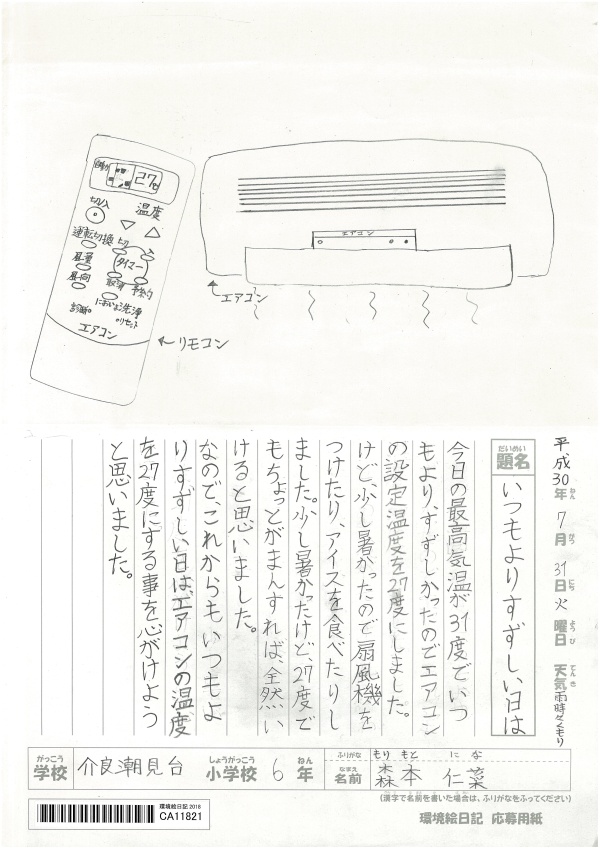 自動
27℃
切/入
温度
運転切換
切
入
タイマー
風量
風向
取消
予約
におい洗浄
診断
リセット
エアコン
リモコン
エアコン
エアコン
平成30年 7月 31日 火曜日 天気 雨時々くもり
ねん
がつ
にち
ようび
てんき
だいめい
題名
いつもよりすずしい日は
今日の最高気温が31度でいつ
もより、すずしかったのでエアコン
の設定温度を27度にしました。
けど、少し暑かったので扇風機を
つけたり、アイスを食べたりし
ました。少し暑かったけど、27度で
もちょっとがまんすれば、全然い
けると思いました。
なので、これからもいつもよ
りすずしい日は、エアコンの温度
を27度にする事を心がけよう
と思いました。
がっこう
学校
介良潮見台
しょうがっこう
小学校
6
ねん
年
ふりがな
もり もと に な
なまえ
名前
森本 仁菜
(漢字で名前を書いた場合は、ふりがなをふってください)
環境絵日記 2018
CA11821
環境絵日記 応募用紙